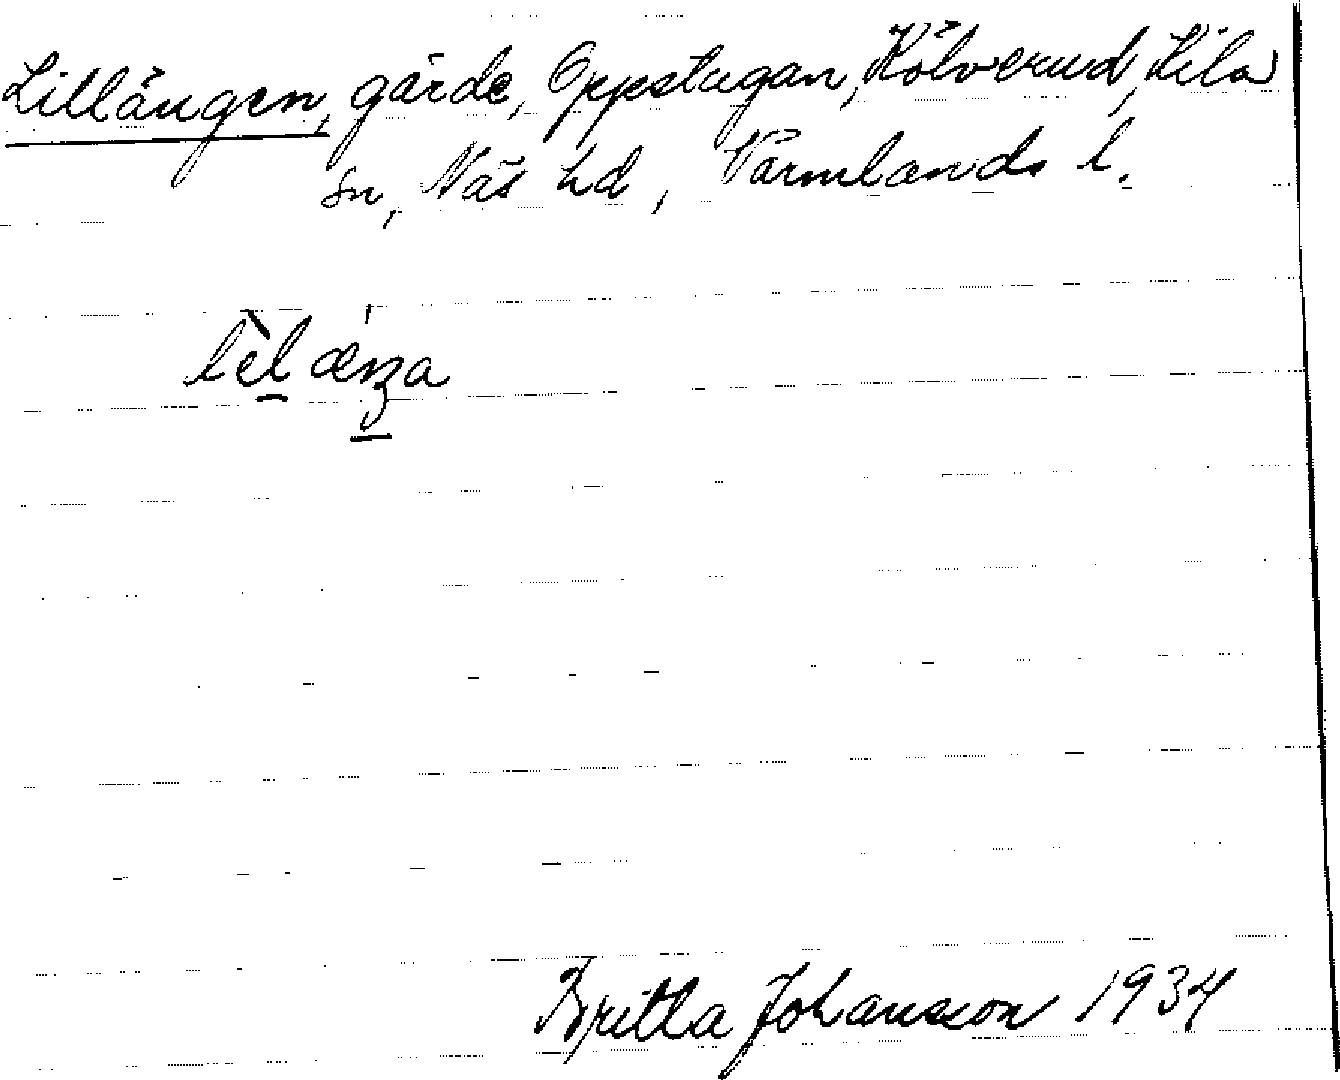 Lillängen, gärde, Oppstugan, Kölverud, Kila
sn, Näs hd, Värmlands l.
lèl ænɜa
Britta Johansson 1934